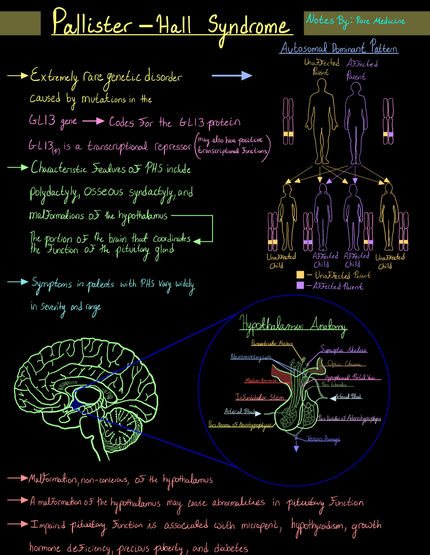 Pallister - Hall Syndrome
Notes By: Rare Medicine
Autosomal Dominant Pattern
Unaffected Parent
Affected Parent
→ Extremely rare genetic disorder
caused by mutations in the
GLI3 gene → Codes for the GLI3 protein
GLI3(R) is a transcriptional repressor (may also have positive transcriptional functions)
→ Characteristic features of PHS include
polydactyly, osseous syndactyly, and
malformations of the hypothalamus
The portion of the brain that coordinates
the function of the pituitary gland
Unaffected Child
Affected Child
Affected Child
Unaffected Child
- Unaffected Parent
- Affected Parent
→ Symptoms in patients with PHS vary widely
in severity and range
Hypothalamus Anatomy
Supraoptic Nucleus
Optic Chiasm
Hypophyseal Portal Vein
Infundibular Stem
Arterial Blood
Arterial Blood
Venous Drainage
→ Malformation, non-cancerous, of the hypothalamus
→ A malformation of the hypothalamus may cause abnormalities in pituitary function
→ Impaired pituitary function is associated with micropenis, hypothyroidism, growth
hormone deficiency, precious puberty, and diabetes